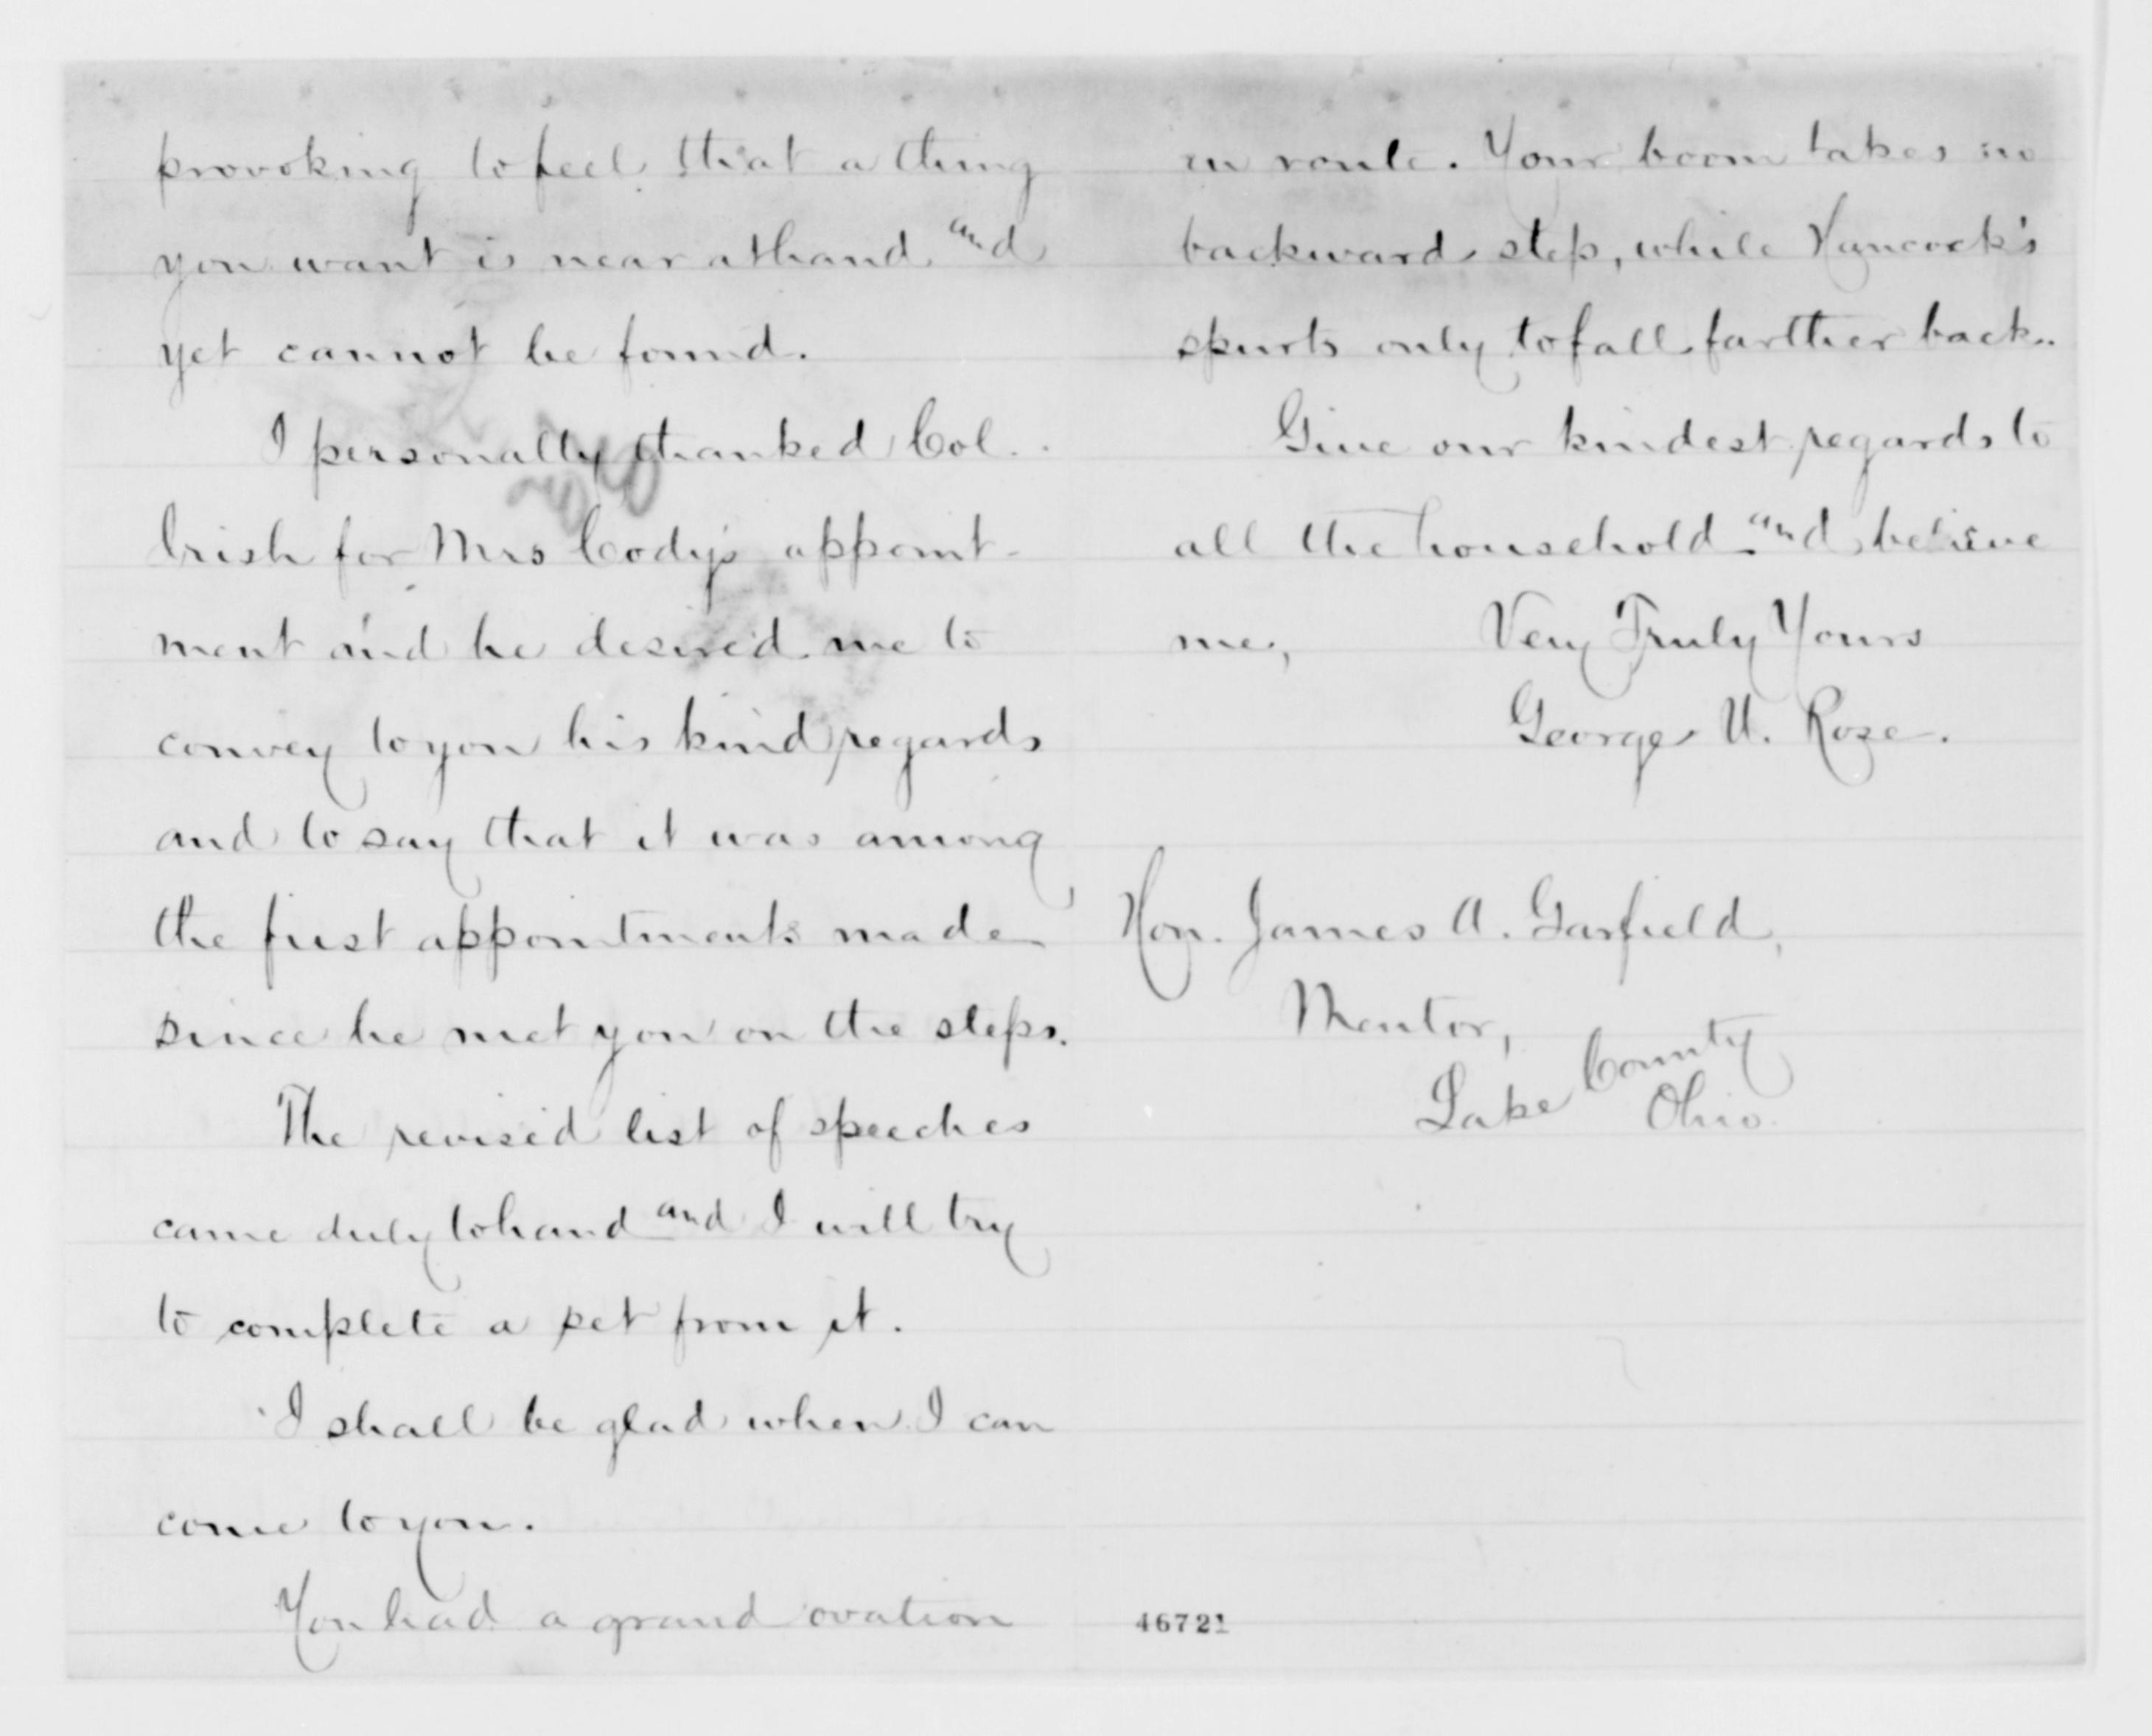 provoking to feel that a thing
you want is near at hand and
yet cannot be found.
I personally thanked Col.
Irish for Mrs Cody's appoint-
ment and he desired me to
convey to you his kind regards
and to say that it was among
the first appointments made
since he met you on the steps.
The revised list of speeches
came duly to hand and I will try
to complete a set from it.
I shall be glad when I can
come to you.
You had a grand ovation
en route. Your boom takes no
backward step, while Hancock's
spurts only to fall farther back.
Give our kindest regards to
all the household and believe
me,
Very Truly Yours
George U. Rose.
Hon. James A. Garfield,
Mentor,
Lake County
Ohio.
46721